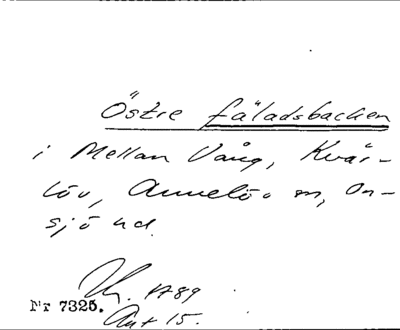 Östre fäladsbacken
i Mellan Vång, Kvär-
löv, Annelövs sn, On-
sjö hd.
1789
Akt 15.
Nr 7325.